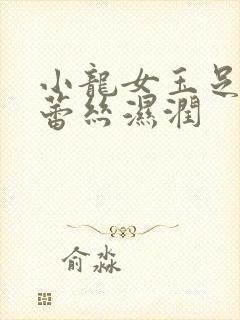 小龍女玉足
蕾絲濕潤
俞淼